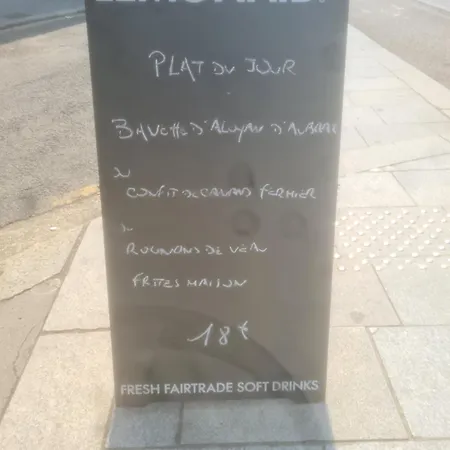 PLAT DU JOUR
BAVETTE D'ALOYAU D'AUBRAC
OU
CONFIT DE CANARD FERMIER
OU
ROGNONS DE VEAU
FRITES MAISON
18€
FRESH FAIRTRADE SOFT DRINKS